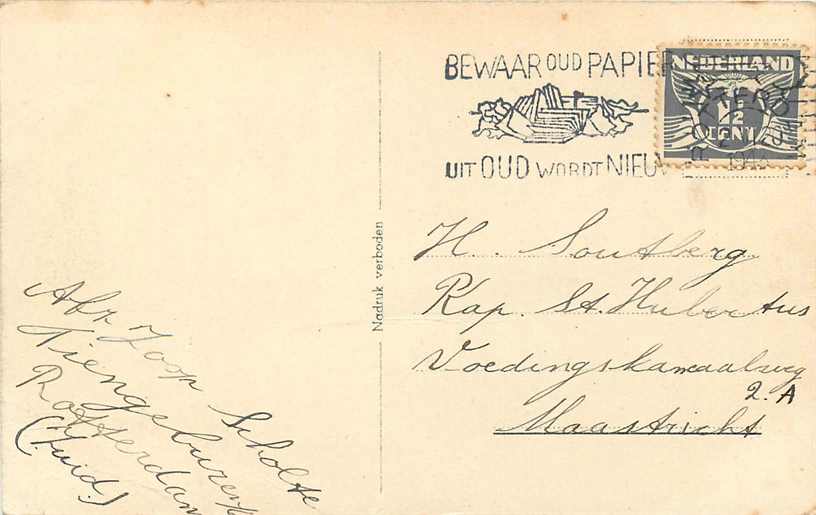 BEWAAR OUD PAPIER
UIT OUD WORDT NIEUW
NEDERLAND
CENT
Nadruk verboden
H. Soutberg
Kap. St. Hubertus
Voedingskanaalweg
2. A
Maastricht
Afz. Joop Scholte
Riengeburen
Rotterdam
(Zuid.)